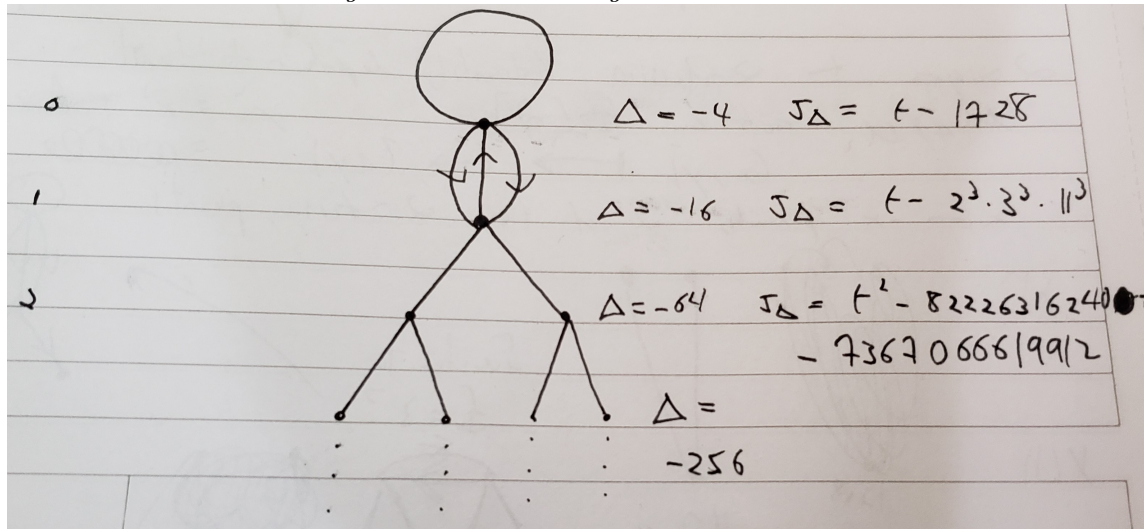 0 Δ = -4 J_Δ = t - 1728
1 Δ = -16 J_Δ = t - 2³·3³·11³
2 Δ = -64 J_Δ = t² - 82226316240
- 7367066619912
Δ =
-256